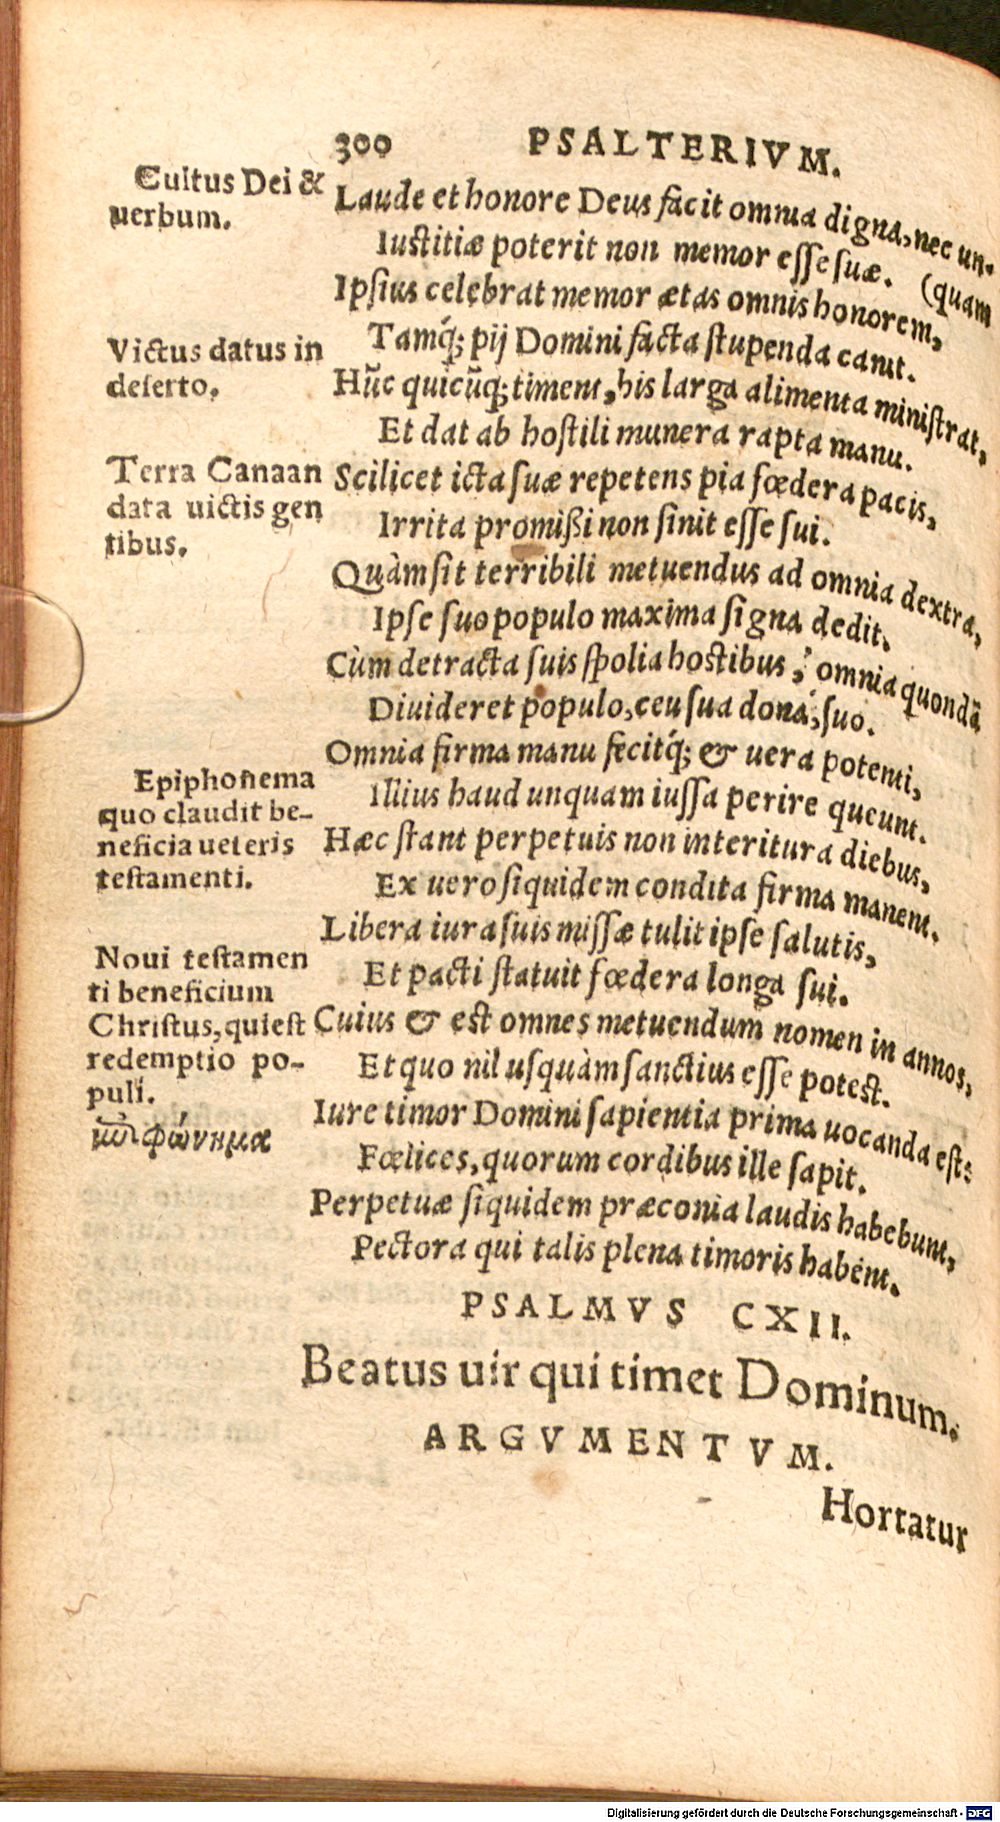 300 PSALTERIVM.
Cultus Dei &
uerbum.
Laude et honore Deus facit omnia digna, nec un-
Iustitiæ poterit non memor esse suæ. (quam
Ipsius celebrat memor ætas omnis honorem,
Tamq́; pij Domini facta stupenda canit.
Victus datus in
deserto.
Hūc quicūq; timent, his larga alimenta ministrat,
Et dat ab hostili munera rapta manu.
Terra Canaan
data uictis gen
tibus.
Scilicet icta suæ repetens pia fœdera pacis,
Irrita promißi non sinit esse sui.
Quàm sit terribili metuendus ad omnia dextra,
Ipse suo populo maxima signa dedit.
Cùm detracta suis spolia hostibus, omnia quondā
Diuideret populo, ceu sua dona, suo.
Omnia firma manu fecitq́; & uera potenti,
Illius haud unquam iussa perire queunt.
Epiphonema
quo claudit be-
neficia ueteris
testamenti.
Hæc stant perpetuis non interitura diebus,
Ex uero siquidem condita firma manent.
Libera iura suis missæ tulit ipse salutis,
Et pacti statuit fœdera longa sui.
Noui testamen
ti beneficium
Christus, qui est
redemptio po-
puli.
Cuius & est omnes metuendum nomen in annos,
Et quo nil usquàm sanctius esse potest.
Iure timor Domini sapientia prima uocanda est:
Fœlices, quorum cordibus ille sapit.
Perpetuæ siquidem præconia laudis habebunt,
Pectora qui talis plena timoris habent.
PSALMVS CXII.
Beatus uir qui timet Dominum.
ARGVMENTVM.
Hortatur
Digitalisierung gefördert durch die Deutsche Forschungsgemeinschaft - DFG